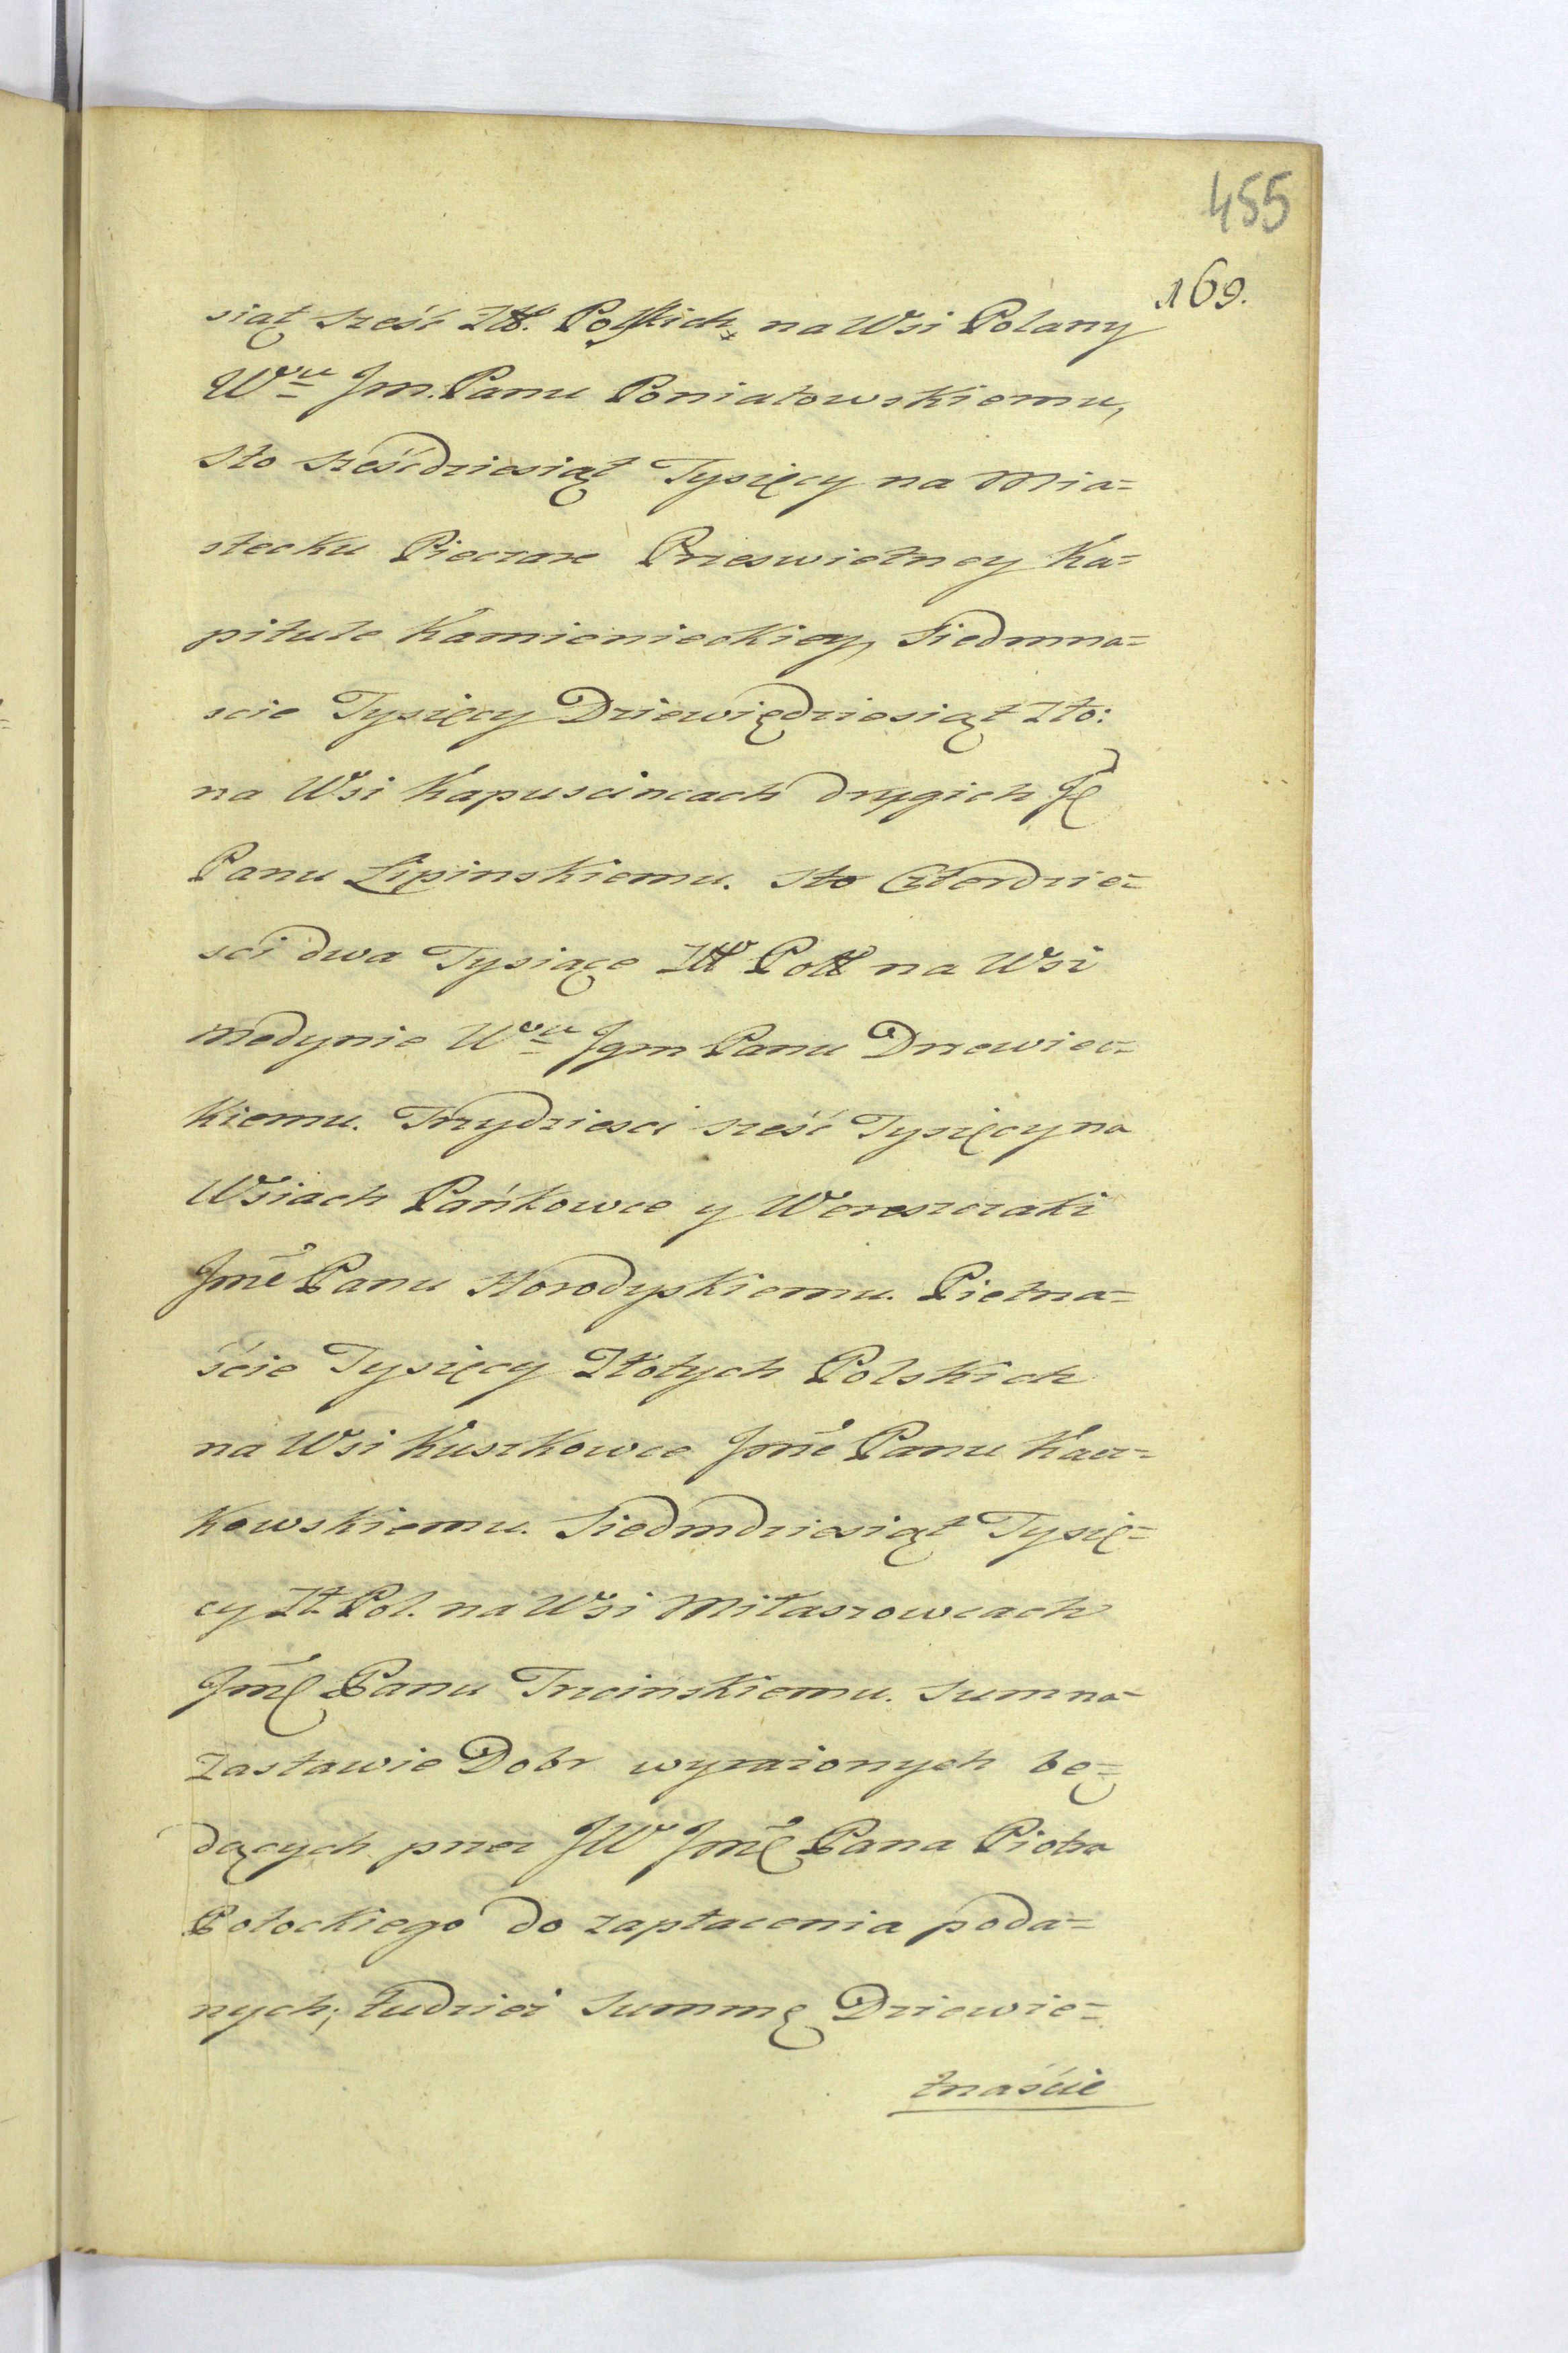 455
169.
siąt sześć Złł. Polskich, na Wsi Polany
Wᵒᵘ Jm. Panu Poniatowskiemu,
sto sześćdziesiąt Tysięcy na Mia=
steczku Pieczare Przeswietney Ka=
pitule Kamienieckiey, Siedmna=
scie Tysięcy Dziewiędziesiąt Zło:
na Wsi Kapuscincach drugich Ję
Panu Lipinskiemu. Sto Czterdzie=
sci dwa Tysiące Złł Poll na Wsi
Medynie Wᵒᵘ Jgm Panu Drzewiec=
kiemu. Trzydziesci sześć Tysięcy na
Wsiach Pańkowce y Wereszczaki
Jmć Panu Horodyskiemu. Pietna=
ście Tysięcy Złotych Polskich
na Wsi Kuszkowce Jmć Panu Kacz=
kowskiemu. Siedmdziesiąt Tysię=
cy Zł. Pol. na Wsi Miłaszowcach
Jmę Panu Trzcinskiemu. Summ na
zastawie Dobr wyrażonych bę=
dących przez JW Jmę Pana Piotra
Potockiego do zapłacenia poda=
nych; tudzież Summę Dziewie=
tnaście